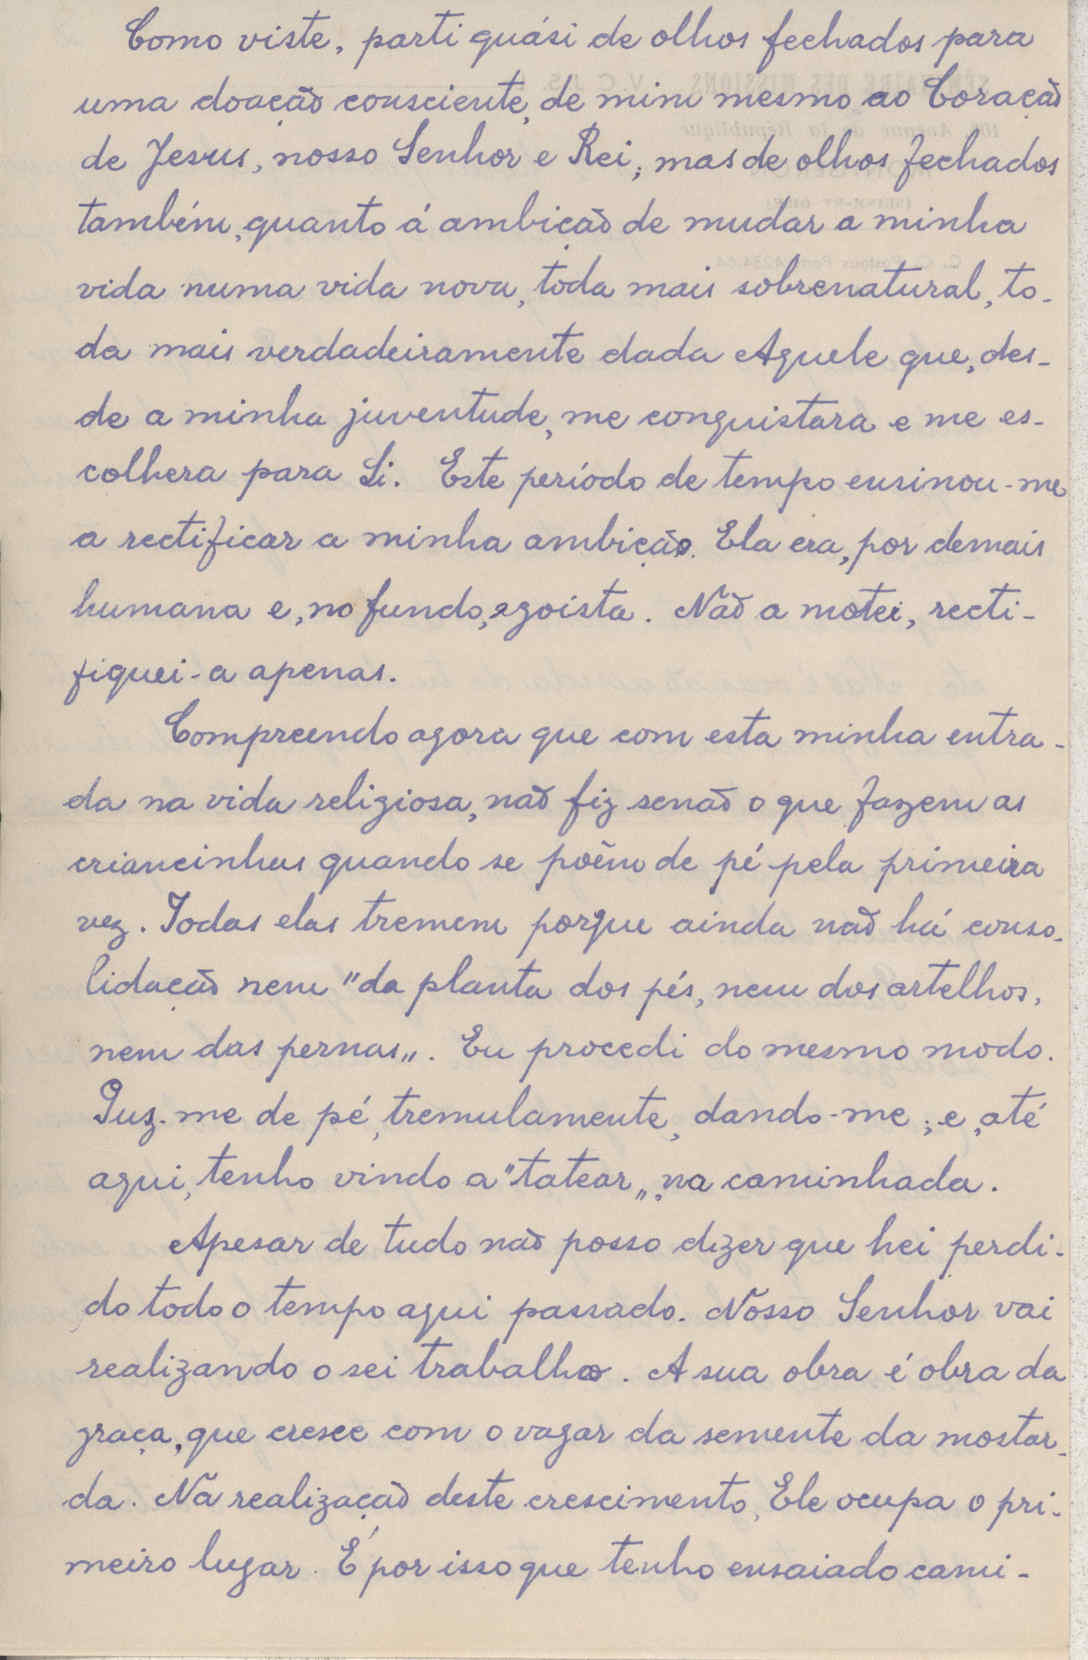 Como viste, parti quási de olhos fechados para
uma doação consciente, de mim mesmo ao Coração
de Jesus, nosso Senhor e Rei; mas de olhos fechados
também, quanto á ambição de mudar a minha
vida numa vida nova, toda mais sobrenatural, to-
da mais verdadeiramente dada Aquele que, des-
de a minha juventude, me conquistara e me es-
colhera para Si. Este período de tempo ensinou-me
a rectificar a minha ambição. Ela era, por demais
humana e, no fundo, egoísta. Não a matei, recti-
fiquei-a apenas.
Compreendo agora que com esta minha entra-
da na vida religiosa, não fiz senão o que fazem as
criancinhas quando se põem de pé pela primeira
vez. Todas elas tremem porque ainda não há conso-
lidação nem "da planta dos pés, nem dos artelhos,
nem das pernas„. Eu procedi do mesmo modo.
Puz-me de pé, tremulamente, dando-me; e, até
aqui, tenho vindo a "tatear„ na caminhada.
Apesar de tudo não posso dizer que hei perdi-
do todo o tempo aqui passado. Nosso Senhor vai
realizando o sei trabalho. A sua obra é obra da
graça, que cresce com o vagar da semente da mostar-
da. Na realização deste crescimento, Ele ocupa o pri-
meiro lugar. É por isso que tenho ensaiado cami-